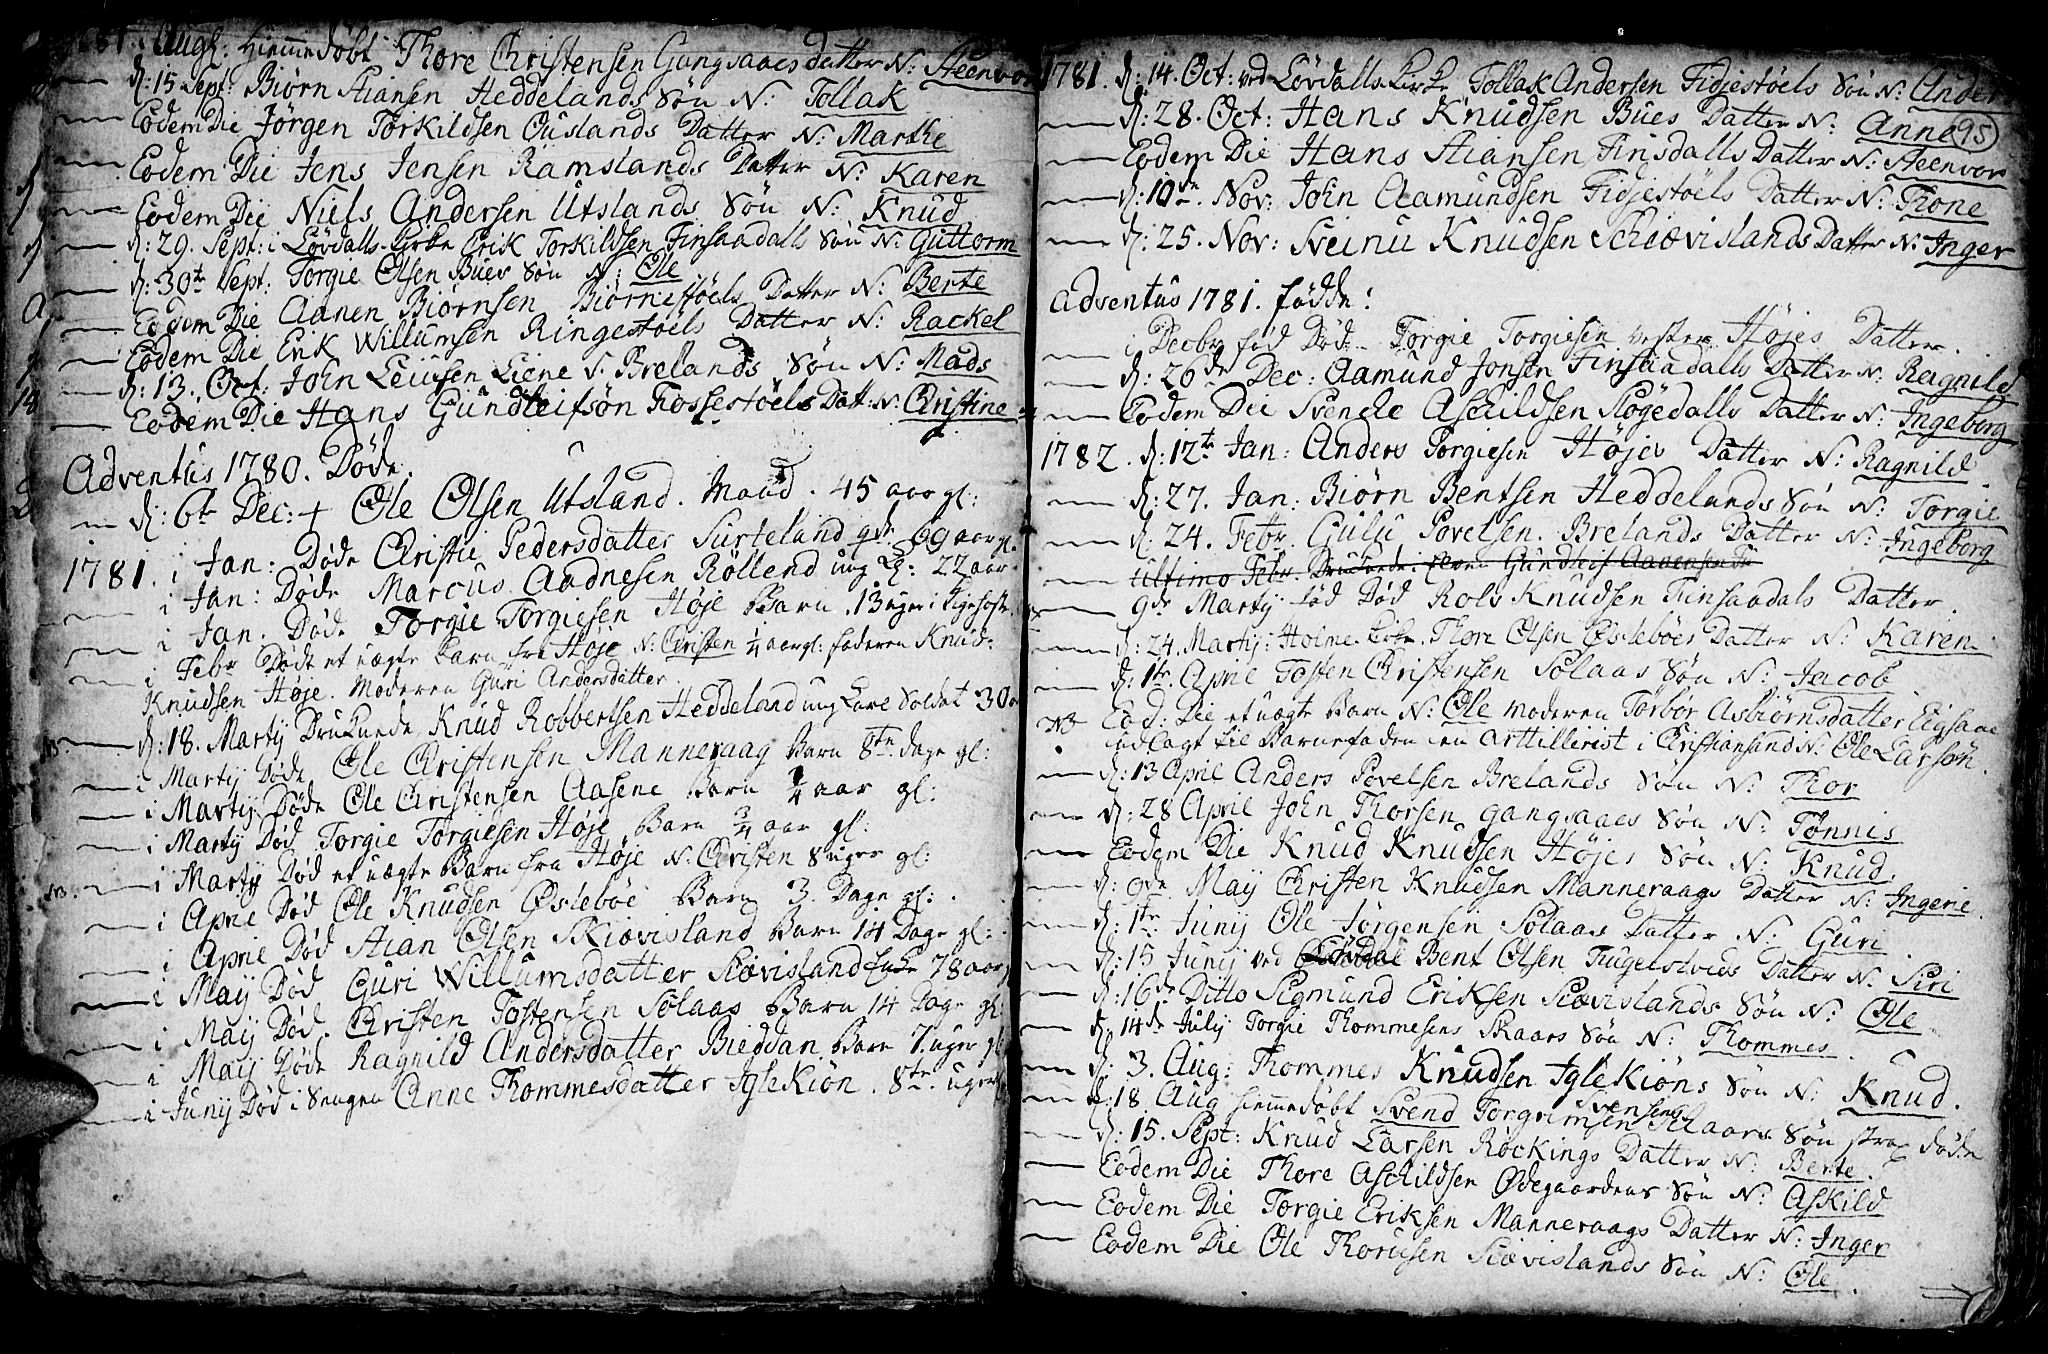 Aug: hiemmedøbt Thore Christensen Gangsaaes datter N: Steenvor
d: 15 Sept: Biørn Stiansen Heddelands Søn N: Tollak
Eodem Die Jørgen Torkildsen Ouslands Datter N: Marthe
Eodem Die Jens Jensen Ramslands Datter N: Karen
Eodem Die Niels Andersen Utslands Søn N: Knud
d: 29. Sept: i Løvdalls Kirke Erik Torkildsen Finsaadalls Søn N: Guttorm
d: 30te Sept: Torgie Olsen Bues Søn N: Ole
Eodem Die Aanen Biørnsen Biørnestøels Datter N: Berte
Eodem Die Erik Willumsen Ringestøels Datter N: Rackel
d: 13. Oct: John Leufsen Liene v. Brelands Søn N: Mads
Eodem Die Hans Gundleifsøn Fossestøels Datt: N: Christine
Adventus 1780. Døde.
d: 6te Dec: + Ole Olsen Utsland. Mand. 45 aar gl:
1781. i Jan: Døde Christie Pedersdatter Surteland gde 69 aar gl.
i Jan: Døde Marcus Aadnesen Røllend ung K: 22 aar
i Jan. Døde Torgie Torgiesen Høje Barn 13 uger i Kigehoste
i Febr Døde et uægte barn fra Høje N: Christen 1/4 aar gl: faderen Knud
Knudsen Høje. Moderen Guri Andersdatter.
NB. d: 18. Martij Druknede Knud Robbertsen Heddeland ung Karl Soldat 30 aar
i Martij Døde Ole Christensen Manneraag Barn 8te dage gl:
i Martij Døde Ole Christensen Aasene Barn 3/4 aar gl:
i Martij Død Torgie Torgiesen Høje Barn 3/4 aar gl:
NB. i Martij Død et uægte Barn fra Høje N: Christen 8 uger gl:
i Aprie Død Ole Knudsen Øslebøe Barn 3. Dage gl:
i Aprie Død Stian Olsen Skiævisland Barn 14 Dage gl:
i Maij Død Guri Willumsdatter Skiævisland Enke 78 aar
i Maij Død. Christen Tostensen Solaas Barn 14 Dage gl:
i Maij Døde Ragnild Andersdatter Bieddan Barn 7. uger gl
i Junij Død i Sengen Anne Thommesdatter Iglekiøn. 8te uger
95
1781. d: 14. Oct: ved Løvdalls Kirke Tollak Andersen Fidjestøels Søn N: Anders
d: 28. Oct: Hans Knudsen Bues Datter N: Anne
Eodem Die Hans Stiansen Finsdalls Datter N: Steenvor
d: 10de. Nov: John Aamundsen Fidjestøels Datter N: Thone
d: 25. Nov: Sveinu Knudsen Schiævislands Datter N: Inger
Adventus 1781. fødde:
i Decbr fød Død Torgie Torgiesen vester Højes Datter.
d: 26de Dec: Aamund Jonsen Finsaadalls Datter N: Ragnild
Eodem Die Svencke Aschildsen Støgedalls Datter N: Ingeborg
1782. d: 12te Jan: Anders Torgiesen Højes Datter N: Ragnild
d: 27. Jan: Biørn Bentsen Heddelands Søn N: Torgie
d: 24. Febr Gulu Povelsen Brelands Datter N: Ingeborg
ultimo Febr. Druknede i Elven Gundleif Aanensen
9de Martij fød Død Rols Knudsen Finsaadals Datter.
d: 24. Martij: Holme Kirke Thore Olsen Øslebøes Datter N: Karen.
d: 1te Aprie Tosten Christensen Solaas Søn N: Jacob
NB Eod: Die et uægte Barn N: Ole moderen Torbør Asbiørnsdatter Eigsaae
udlagt til Barnefader en Arttillerist i Christiansand N: Ole Larsøn.
d: 13 Aprie Anders Povelsen Brelands Søn N: Thor
d: 28 Aprie John Thorsen Gangsaaes Søn N: Tønnis
Eodem Die Knud Knudsen Højes Søn N: Knud.
d: 9de Maij Christen Knudsen Manneraags Datter N: Ingerie.
d: 1te Junij Ole Jørgensen Solaas Datter N: Guri
d: 15 Junij ved Løvdal Bent Olsen Fuglestveds Datter N: Siri
d: 16de Ditto Sigmund Eriksen Skiævislands Søn N: Ole
d: 14de Julij Torgie Thommesens Skaars Søn N: Thommes.
d: 3. Aug: Thommes Knudsen Iglekiøns Søn N: Knud.
d: 18 Aug hiemmedøbt Svend Torgrimsen Svensens Skaars Søn strax døde
d: 15. Sept: Knud Larsen Røckings Datter N: Berte.
Eodem Die Thore Aschildsen Ødegaardens Søn N: Askild
Eodem Die Torgie Eriksen Manneraags Datter N: Inger
Eodem Die Ole Thorusen Skiævislands Søn N: Ole.